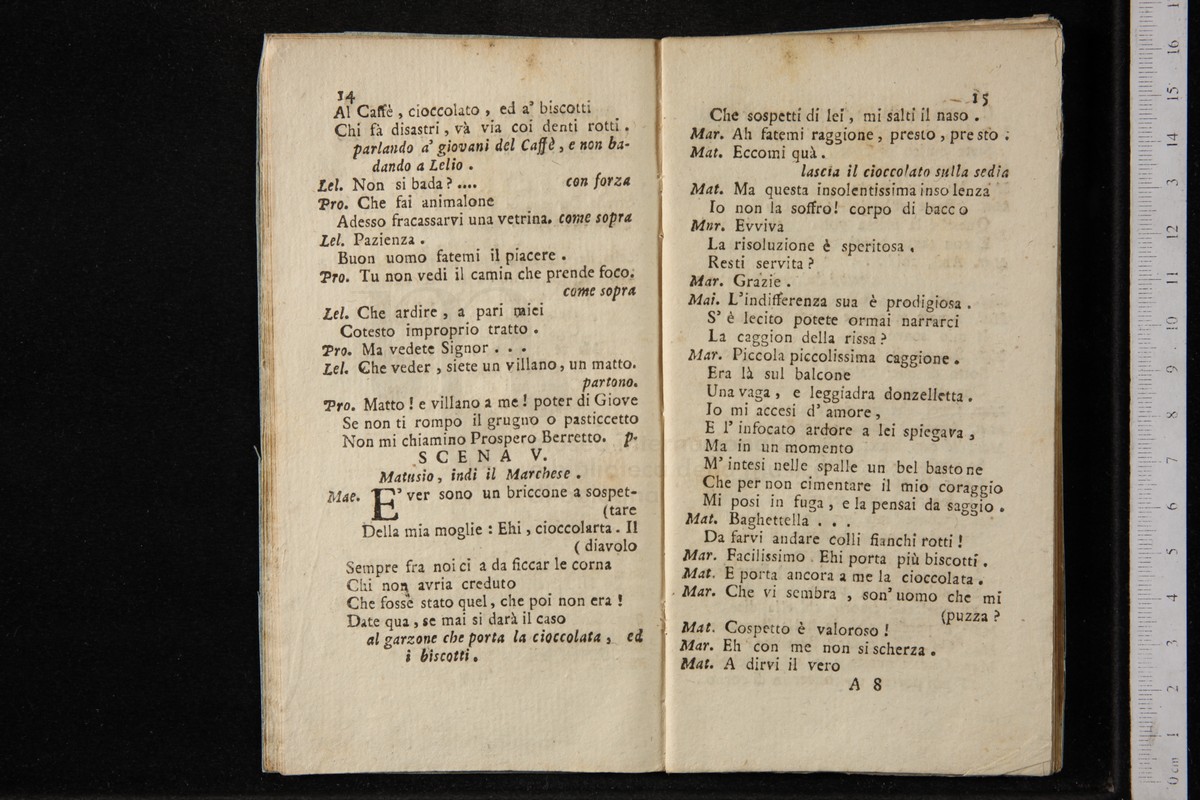 14
Al Caffè , cioccolato , ed a' biscotti
Chi fà disastri , và via coi denti rotti .
parlando a' giovani del Caffè , e non ba-
dando a Lelio .
Lel. Non si bada ? .... con forza
Pro. Che fai animalone
Adesso fracassarvi una vetrina. come sopra
Lel. Pazienza .
Buon uomo fatemi il piacere .
Pro. Tu non vedi il camin che prende foco.
come sopra
Lel. Che ardire , a pari miei
Cotesto improprio tratto .
Pro. Ma vedete Signor . . .
Lel. Che veder , siete un villano, un matto.
partono.
Pro. Matto ! e villano a me ! poter di Giove
Se non ti rompo il grugno o pasticcetto
Non mi chiamino Prospero Berretto. p.
SCENA V.
Matusio, indi il Marchese .
Mae. E' ver sono un briccone a sospet-
(tare
Della mia moglie : Ehi , cioccolarta . Il
( diavolo
Sempre fra noi ci a da ficcar le corna
Chi non avria creduto
Che fosse stato quel, che poi non era !
Date qua , se mai si darà il caso
al garzone che porta la cioccolata , ed
i biscotti .
15
Che sospetti di lei , mi salti il naso .
Mar. Ah fatemi raggione , presto , pre sto .
Mat. Eccomi quà .
lascia il cioccolato sulla sedia
Mat. Ma questa insolentissima inso lenza
Io non la soffro! corpo di bacc o
Mnr. Evviva
La risoluzione è speritosa .
Resti servita ?
Mar. Grazie .
Mai. L'indifferenza sua è prodigiosa .
S' è lecito potete ormai narrarci
La caggion della rissa ?
Mar. Piccola piccolissima caggione .
Era là sul balcone
Una vaga , e leggiadra donzelletta .
Io mi accesi d' amore ,
E l' infocato ardore a lei spiegava ,
Ma in un momento
M' intesi nelle spalle un bel basto ne
Che per non cimentare il mio coraggio
Mi posi in fuga , e la pensai da saggio .
Mat. Baghettella . . .
Da farvi andare colli fianchi rotti !
Mar. Facilissimo . Ehi porta più biscotti .
Mat. E porta ancora a me la cioccolata .
Mar. Che vi sembra , son' uomo che mi
(puzza ?
Mat. Cospetto è valoroso !
Mar. Eh con me non si scherza .
Mat. A dirvi il vero
A 8
0 cm 1 2 3 4 5 6 7 8 9 10 11 12 13 14 15 16